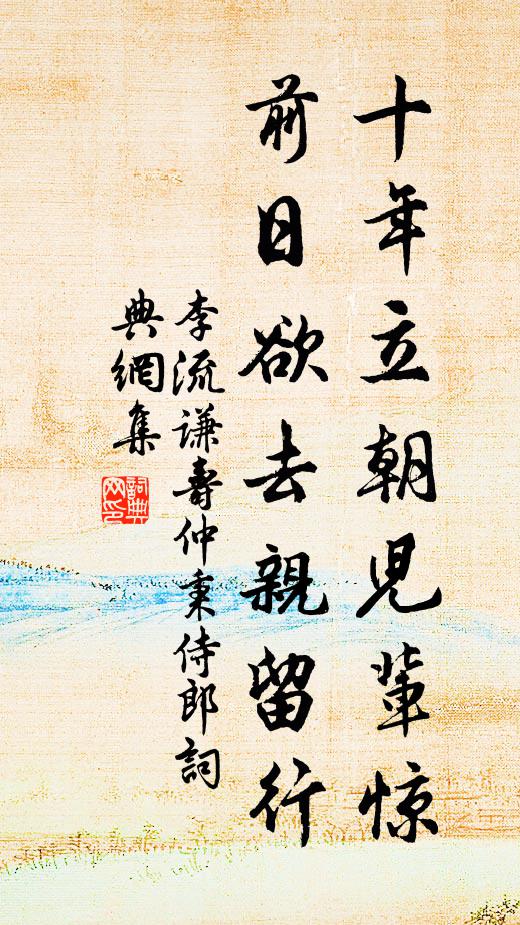 十年立朝児輩惊
前日欲去親留行
李流谦壽仲秉侍郎詞
典網集
詞典网印